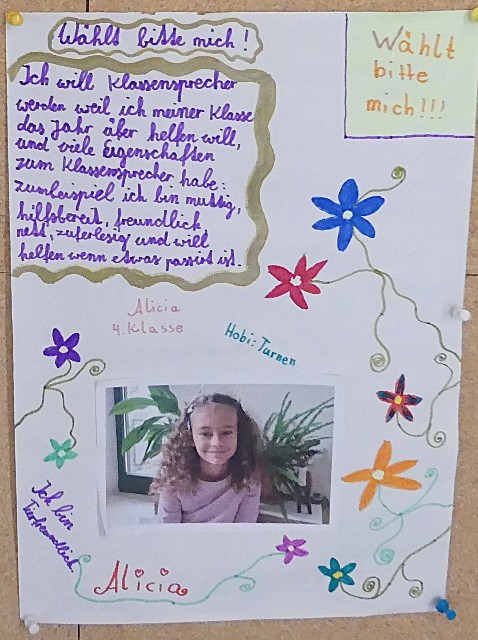 Wählt bitte mich!
Wählt
bitte
mich!!!
Ich will Klassensprecher
werden weil ich meiner Klasse
das Jahr über helfen will,
und viele Eigenschaften
zum Klassensprecher habe:
zumbeispiel ich bin muttig,
hilfsbereit, freundlich,
nett, zuferlesig und will
helfen wenn etwas passirt ist.
Alicia
4. Klasse
Hobi: Turnen
Ich bin
Tierfreundlich.
Alicia